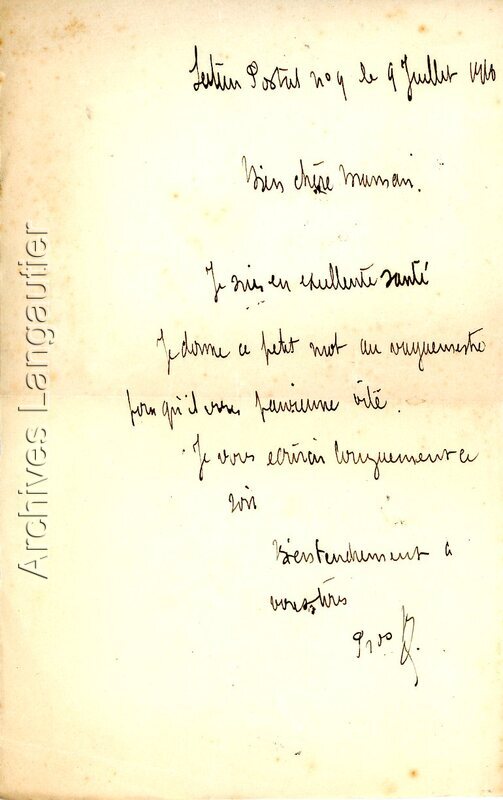 Secteur Postal n° 9 le 9 Juillet 1916
Bien chère Maman.
Je suis en excellente santé
Je donne ce petit mot au vaguemestre
pour qu'il vous parvienne vite.
Je vous écrirai longuement ce
soir
Bien tendrement à
vous tous
Archives Langautier